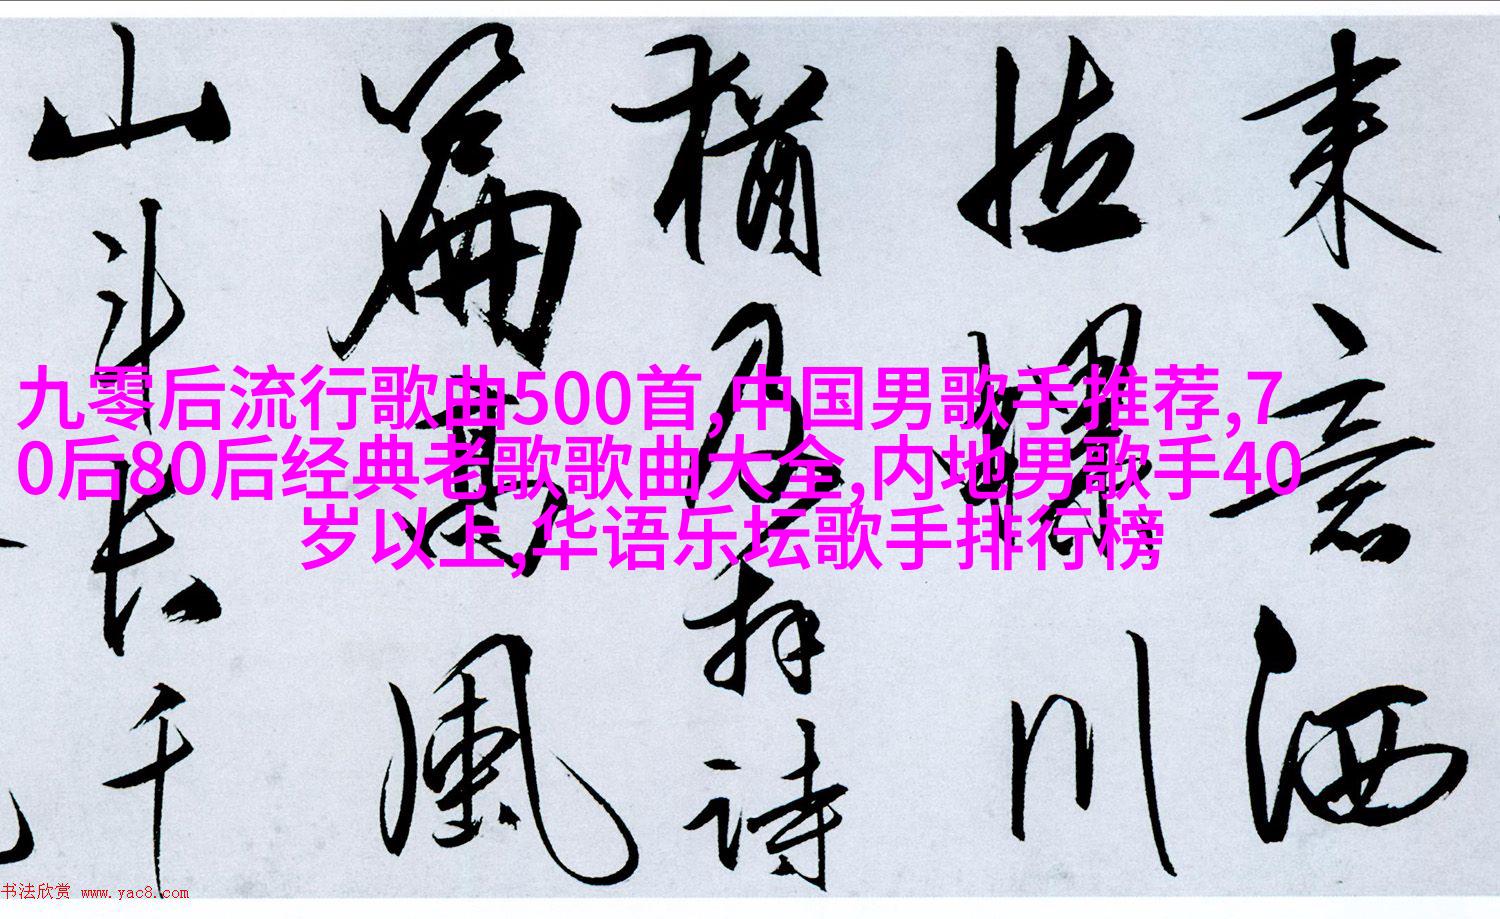 来意洒
川
拜詩
篇高風
山斗長千
九零后流行歌曲500首,中国男歌手推荐,7
0后80后经典老歌歌曲大全,内地男歌手40
岁以上,华语乐坛歌手排行榜
书法欣赏 www.yac8.com